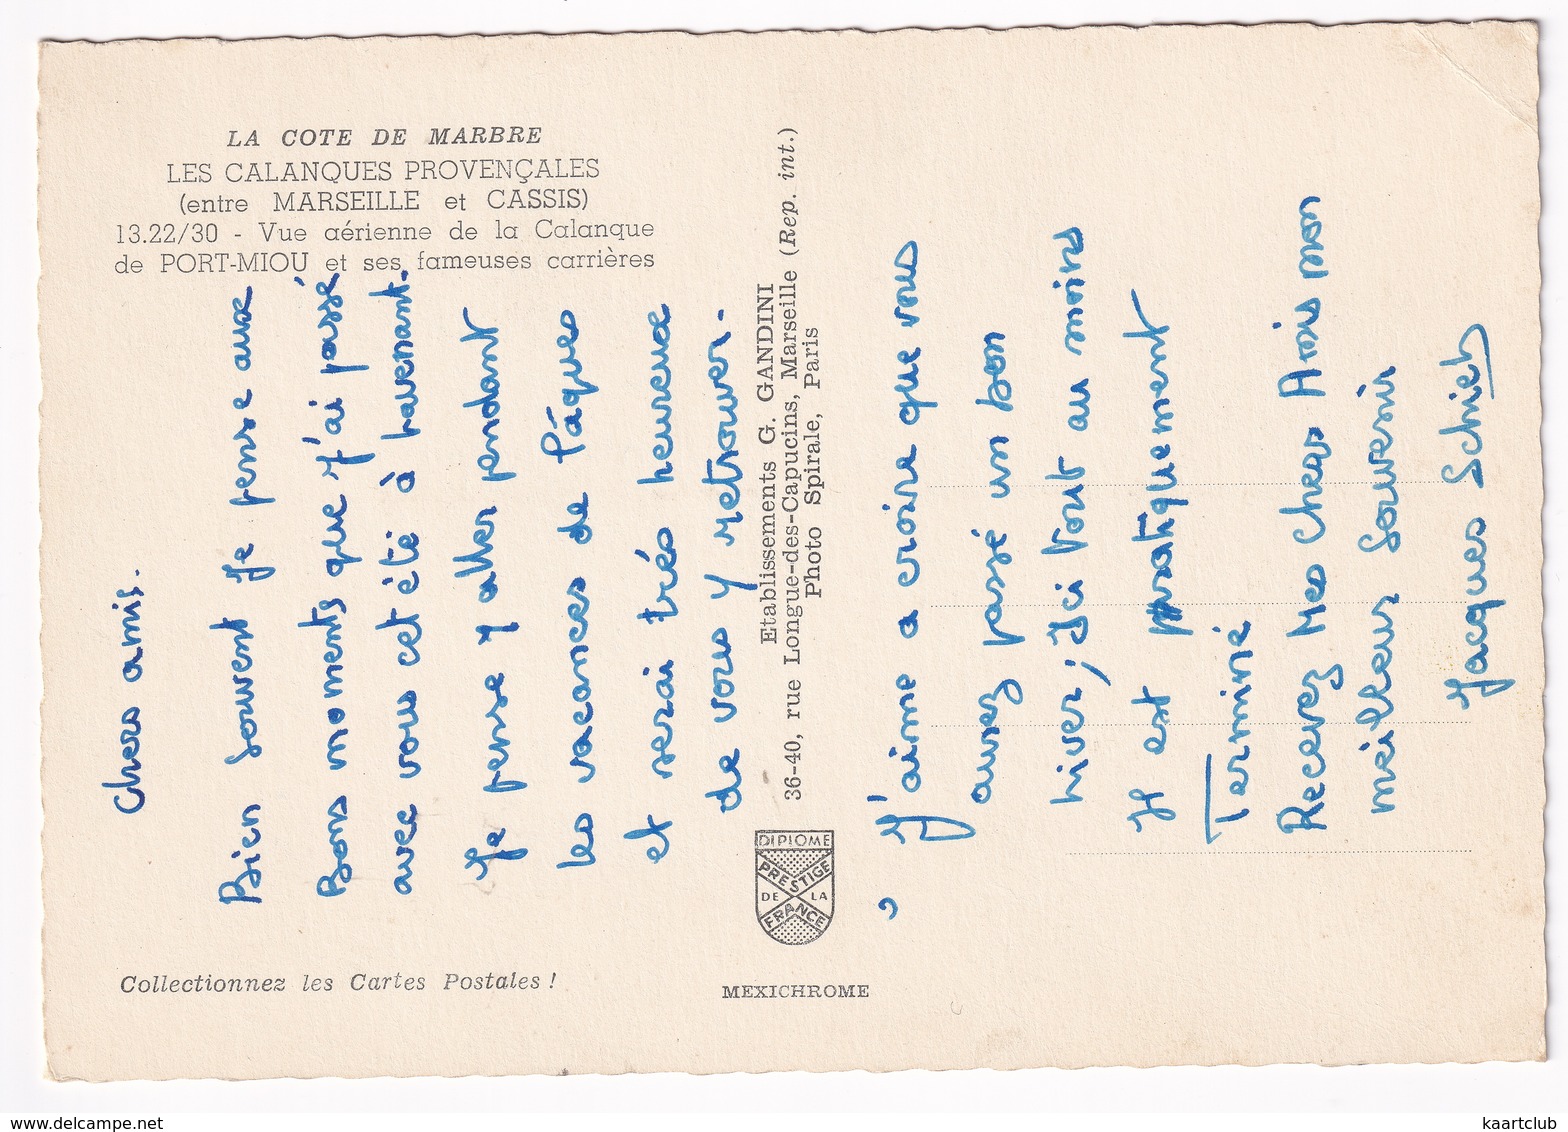 LA COTE DE MARBRE
LES CALANQUES PROVENÇALES
(entre MARSEILLE et CASSIS)
13.22/30 - Vue aérienne de la Calanque
de PORT-MIOU et ses fameuses carrières
Chers amis.
Bien souvent je pense aux
Bons moments que j'ai passé
avec vous cet été à
Je pense y aller pendant
les vacances de Pâques
et serai très heureux
de vous y retrouver.
Etablissements G. GANDINI
36-40, rue Longue-des-Capucins, Marseille (Rep. int.)
Photo Spirale, Paris
DIPLOME
PRESTIGE
DE LA
FRANCE
Collectionnez les Cartes Postales !
MEXICHROME
J'aime a croire que vous
aurez passé un bon
hiver; Ici tout au moins
Il est pratiquement
Terminé
Recevez Mes chers Amis mon
meilleur souvenir
Jacques
kaartclub